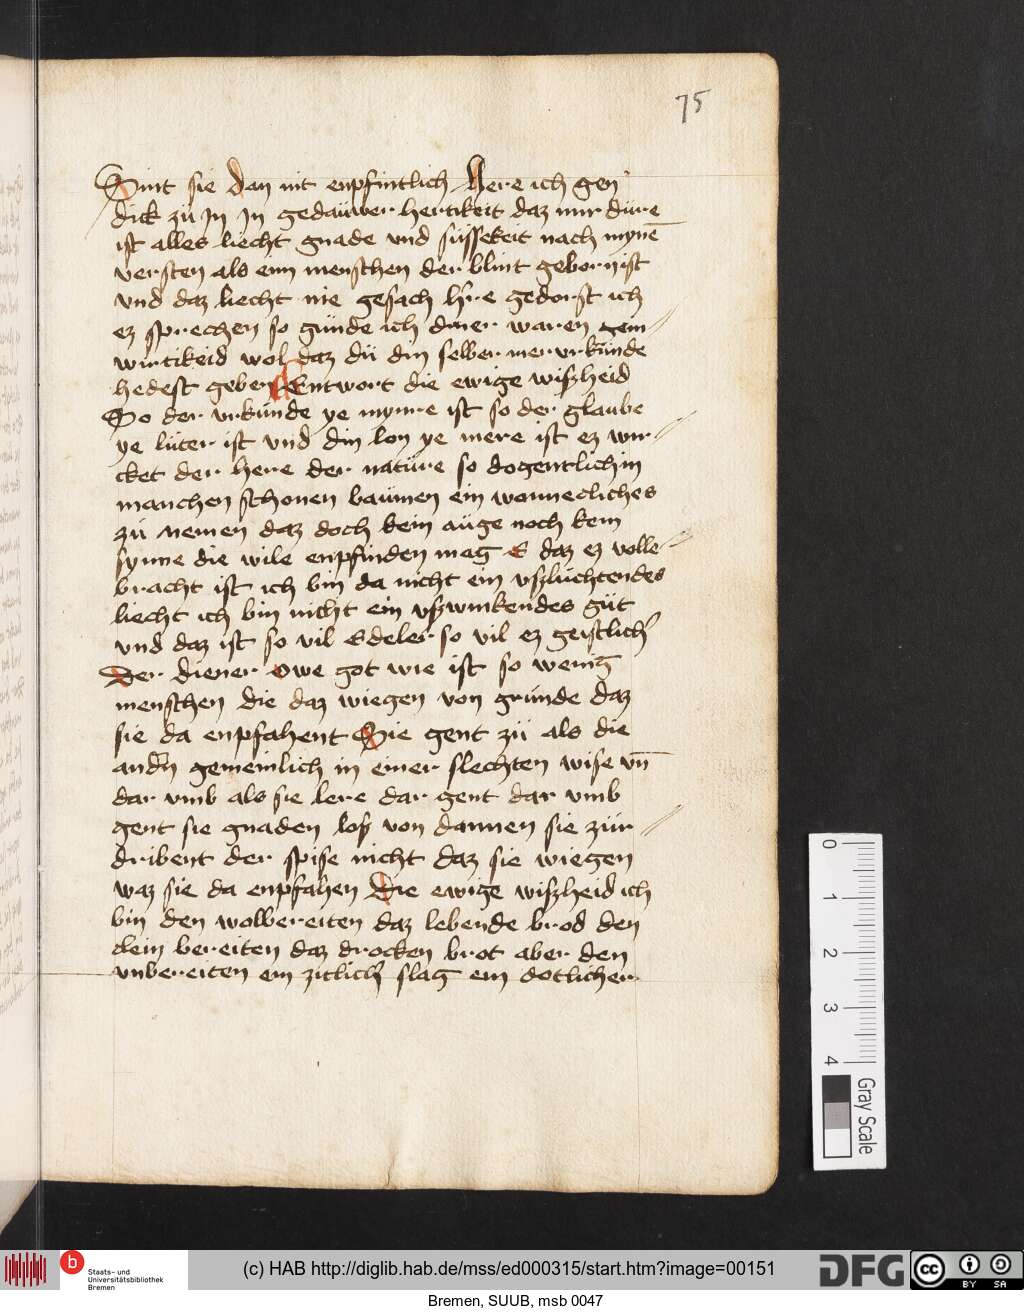 75
Sint sie dan nit enpfintlich Here ich gen
dick zü In In gedauwer hertikeit daz mir düre
ist alles liecht gnade vnd süssekeit nach mynē
versten als einn menschen der blint geborn ist
vnd daz liecht nie gesach h're gedorst ich
ez sprechen so günde ich diner waren gein//
wirtikeid wol daz dü din selber mer vrkünde
hedest geben Entwort die ewige wiszheid
So der vrkünde ye mynre ist so der glaube
ye luter ist vnd din lon ye mere ist ez wir//
cket der here der nature so dogentlich in
manchen schonen baumen ein wonnecliches
zü nemen daz doch kein auge noch kein
synne die wile enpfinden mag E daz ez volle//
bracht ist ich bin da nicht ein vszluchtendes
liecht ich bin nicht ein vszwirckendes güt
vnd daz ist so vil Edeler so vil ez geistlich'
Der diener owe got wie ist so wenig
menschen die daz wiegen von gründe daz
sie da enpfahent Sie gent zü als die
andn gemeinlich in einer slechten wise vn̄
dar vmb als sie lere dar gent dar vmb
gent sie gnaden losz von dannen sie zür//
dribent der spise nicht daz sie wiegen
waz sie da enpfahen Die ewige wiszheid ich
bin den wolbereiten daz lebende brod den
clein bereiten daz drocken brot aber den
vnbereiten ein zitlich' slag ein dotlicher
0 1 2 3 4
Gray Scale
b
Staats- und
Universitätsbibliothek
Bremen
(c) HAB http://diglib.hab.de/mss/ed000315/start.htm?image=00151
DFG
cc BY SA
Bremen, SUUB, msb 0047